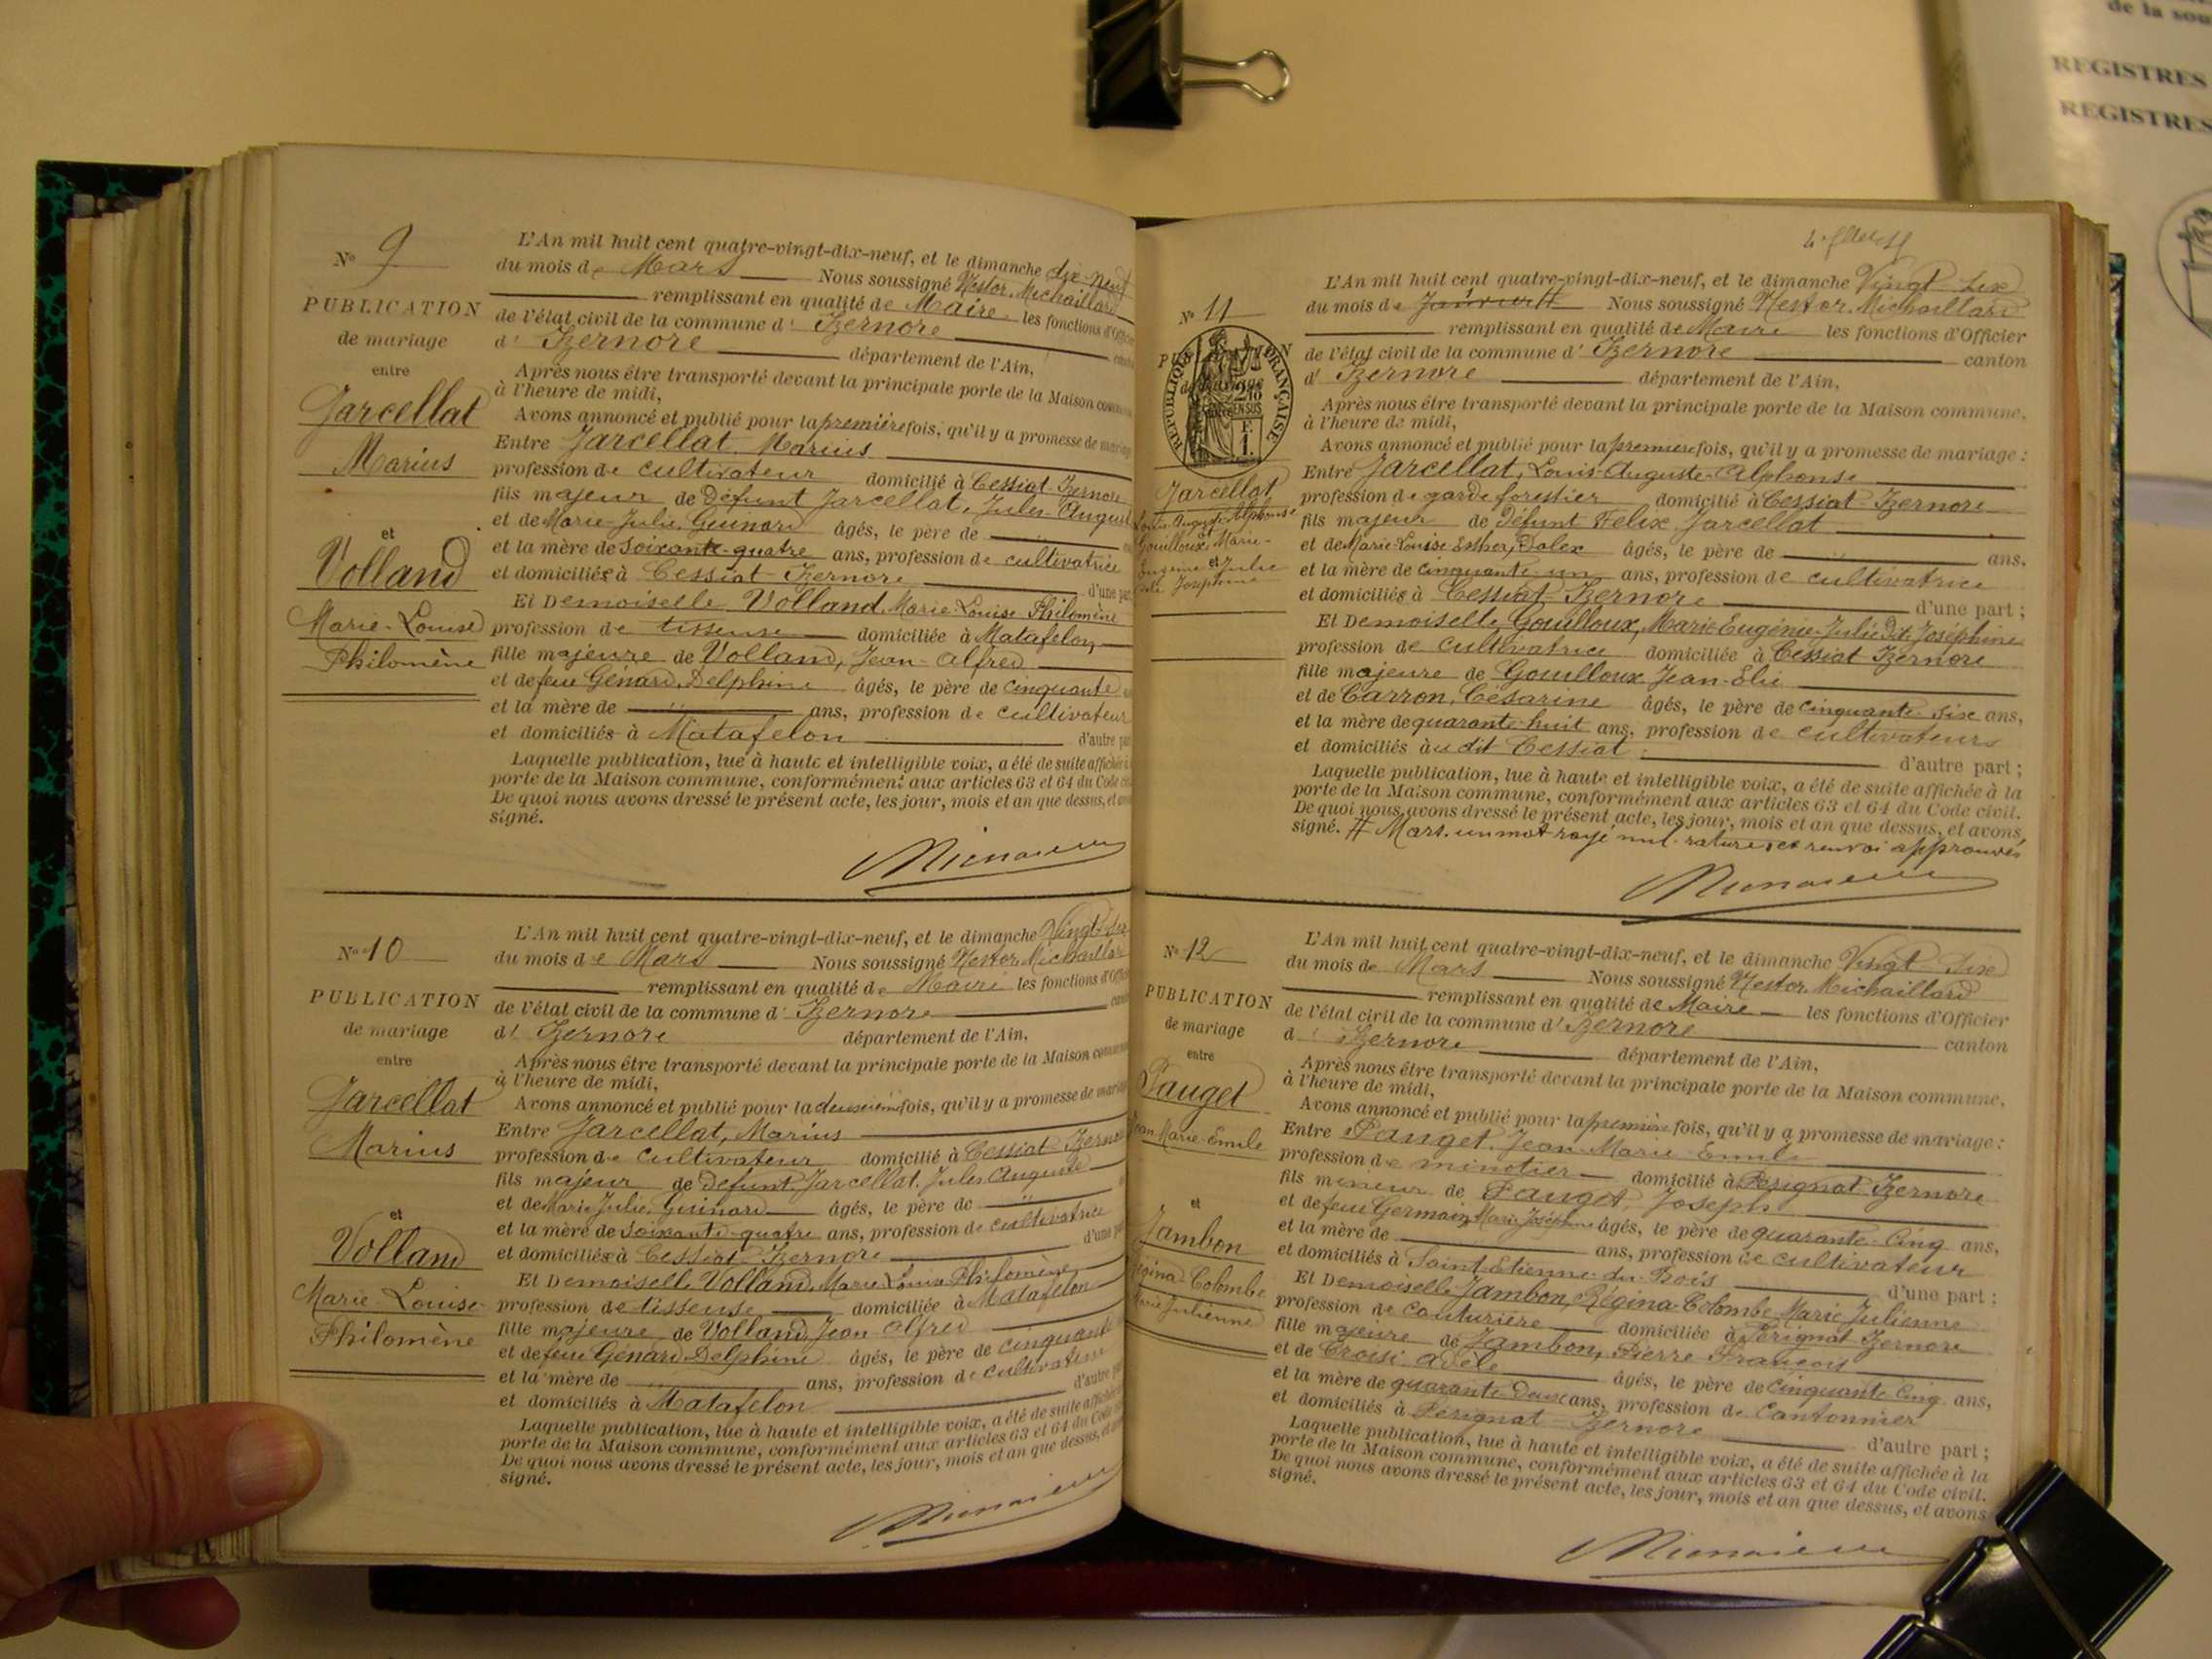 N° 9
PUBLICATION
de mariage
entre
Jarcellat
Marius
et
Volland
Marie-Louise
Philomène
L'An mil huit cent quatre-vingt-dix-neuf, et le dimanche dix-neuf
du mois de Mars Nous soussigné Nestor Michaillard
remplissant en qualité de Maire les fonctions d'Offici
de l'état civil de la commune d' Izernore
d' Izernore département de l'Ain,
Après nous être transporté devant la principale porte de la Maison commune
à l'heure de midi,
Avons annoncé et publié pour la première fois, qu'il y a promesse de mariage
Entre Jarcellat Marius
profession de cultivateur domicilié à Cessiat Izernore
fils majeur de Défunt Jarcellat, Jules-August
et de Marie-Julie, Guinard âgés, le père de
et la mère de soixante-quatre ans, profession de cultivatrice
et domiciliés à Cessiat-Izernore d'une part
Et Demoiselle Volland, Marie-Louise Philomène
profession de tisseuse domiciliée à Matafelon
fille majeure de Volland, Jean-Alfred
et de feue Génard, Delphine âgés, le père de cinquante
et la mère de ans, profession de cultivateur
et domiciliés à Matafelon d'autre part
Laquelle publication, lue à haute et intelligible voix, a été de suite affichée à
porte de la Maison commune, conformément aux articles 63 et 64 du Code
De quoi nous avons dressé le présent acte, les jour, mois et an que dessus, et
signé.
N° 10
PUBLICATION
de mariage
entre
Jarcellat
Marius
et
Volland
Marie Louise
Philomène
L'An mil huit cent quatre-vingt-dix-neuf, et le dimanche Vingt-six
du mois de Mars Nous soussigné Nestor Michaillard
remplissant en qualité de Maire les fonctions d'Offici
de l'état civil de la commune d' Izernore
d' Izernore département de l'Ain,
Après nous être transporté devant la principale porte de la Maison commune
à l'heure de midi,
Avons annoncé et publié pour la deuxième fois, qu'il y a promesse de mariage
Entre Jarcellat, Marius
profession de cultivateur domicilié à Cessiat-Izernore
fils majeur de défunt Jarcellat, Jules Auguste
et de Marie Julie, Guinard âgés, le père de
et la mère de soixante-quatre ans, profession de cultivatrice
et domiciliés à Cessiat-Izernore d'une part
Et Demoiselle Volland, Marie Louise Philomène
profession de tisseuse domiciliée à Matafelon
fille majeure de Volland Jean Alfred
et de feue Génard Delphine âgés, le père de cinquante
et la mère de ans, profession de cultivateur
et domiciliés à Matafelon d'autre part
Laquelle publication, lue à haute et intelligible voix, a été de suite affichée
porte de la Maison commune, conformément aux articles 63 et 64 du Code
De quoi nous avons dressé le présent acte, les jour, mois et an que dessus, et
signé.
N° 11
RÉPUBLIQUE FRANÇAISE
Jarcellat
Louis-Auguste-Alphonse
et
Gouilloux, Marie-
Eugénie et Julie
dite Joséphine
L'An mil huit cent quatre-vingt-dix-neuf, et le dimanche Vingt-six
du mois de Janvier # Nous soussigné Nestor Michaillard
remplissant en qualité de Maire les fonctions d'Officier
de l'état civil de la commune d' Izernore canton
d' Izernore département de l'Ain,
Après nous être transporté devant la principale porte de la Maison commune,
à l'heure de midi,
Avons annoncé et publié pour la première fois, qu'il y a promesse de mariage :
Entre Jarcellat, Louis-Auguste-Alphonse
profession de garde forestier domicilié à Cessiat-Izernore
fils majeur de Défunt Félix Jarcellat
et de Marie-Louise Esther, Dalex âgés, le père de ans,
et la mère de cinquante un ans, profession de cultivatrice
et domiciliés à Cessiat-Izernore d'une part ;
Et Demoiselle, Gouilloux, Marie-Eugénie-Julie dit Joséphine
profession de cultivatrice domiciliée à Cessiat Izernore
fille majeure de Gouilloux Jean-Elie
et de Carron, Césarine âgés, le père de cinquante-six ans,
et la mère de quarante-huit ans, profession de cultivateurs
et domiciliés à u dit Cessiat d'autre part ;
Laquelle publication, lue à haute et intelligible voix, a été de suite affichée à la
porte de la Maison commune, conformément aux articles 63 et 64 du Code civil.
De quoi nous avons dressé le présent acte, les jour, mois et an que dessus, et avons
signé. # Mars. un mot rayé nul. rature et renvoi approuvés
N° 12
PUBLICATION
de mariage
entre
Pauget
Jean Marie-Emile
et
Jambon
Régina-Colombe
Marie Julienne
L'An mil huit cent quatre-vingt-dix-neuf, et le dimanche Vingt-six
du mois de Mars Nous soussigné Nestor Michaillard
remplissant en qualité de Maire les fonctions d'Officier
de l'état civil de la commune d' Izernore canton
d' Izernore département de l'Ain,
Après nous être transporté devant la principale porte de la Maison commune,
à l'heure de midi,
Avons annoncé et publié pour la première fois, qu'il y a promesse de mariage :
Entre Pauget, Jean Marie Emile
profession de minotier domicilié à Perignat Izernore
fils mineur de Pauget, Joseph
et de feue Germain, Marie Joséphine âgés, le père de quarante-cinq ans,
et la mère de ans, profession de cultivateur
et domiciliés à Saint-Etienne-du-Bois d'une part ;
Et Demoiselle Jambon, Régina-Colombe Marie Julienne
profession de couturière domiciliée à Pérignat Izernore
fille majeure de Jambon, Pierre François
et de Croisi Adèle âgés, le père de cinquante cinq ans,
et la mère de quarante-deux ans, profession de Cantonnier
et domiciliés à Pérignat-Izernore d'autre part ;
Laquelle publication, lue à haute et intelligible voix, a été de suite affichée à la
porte de la Maison commune, conformément aux articles 63 et 64 du Code civil.
De quoi nous avons dressé le présent acte, les jour, mois et an que dessus, et avons
signé.
de la sou
REGISTRES
REGISTRES